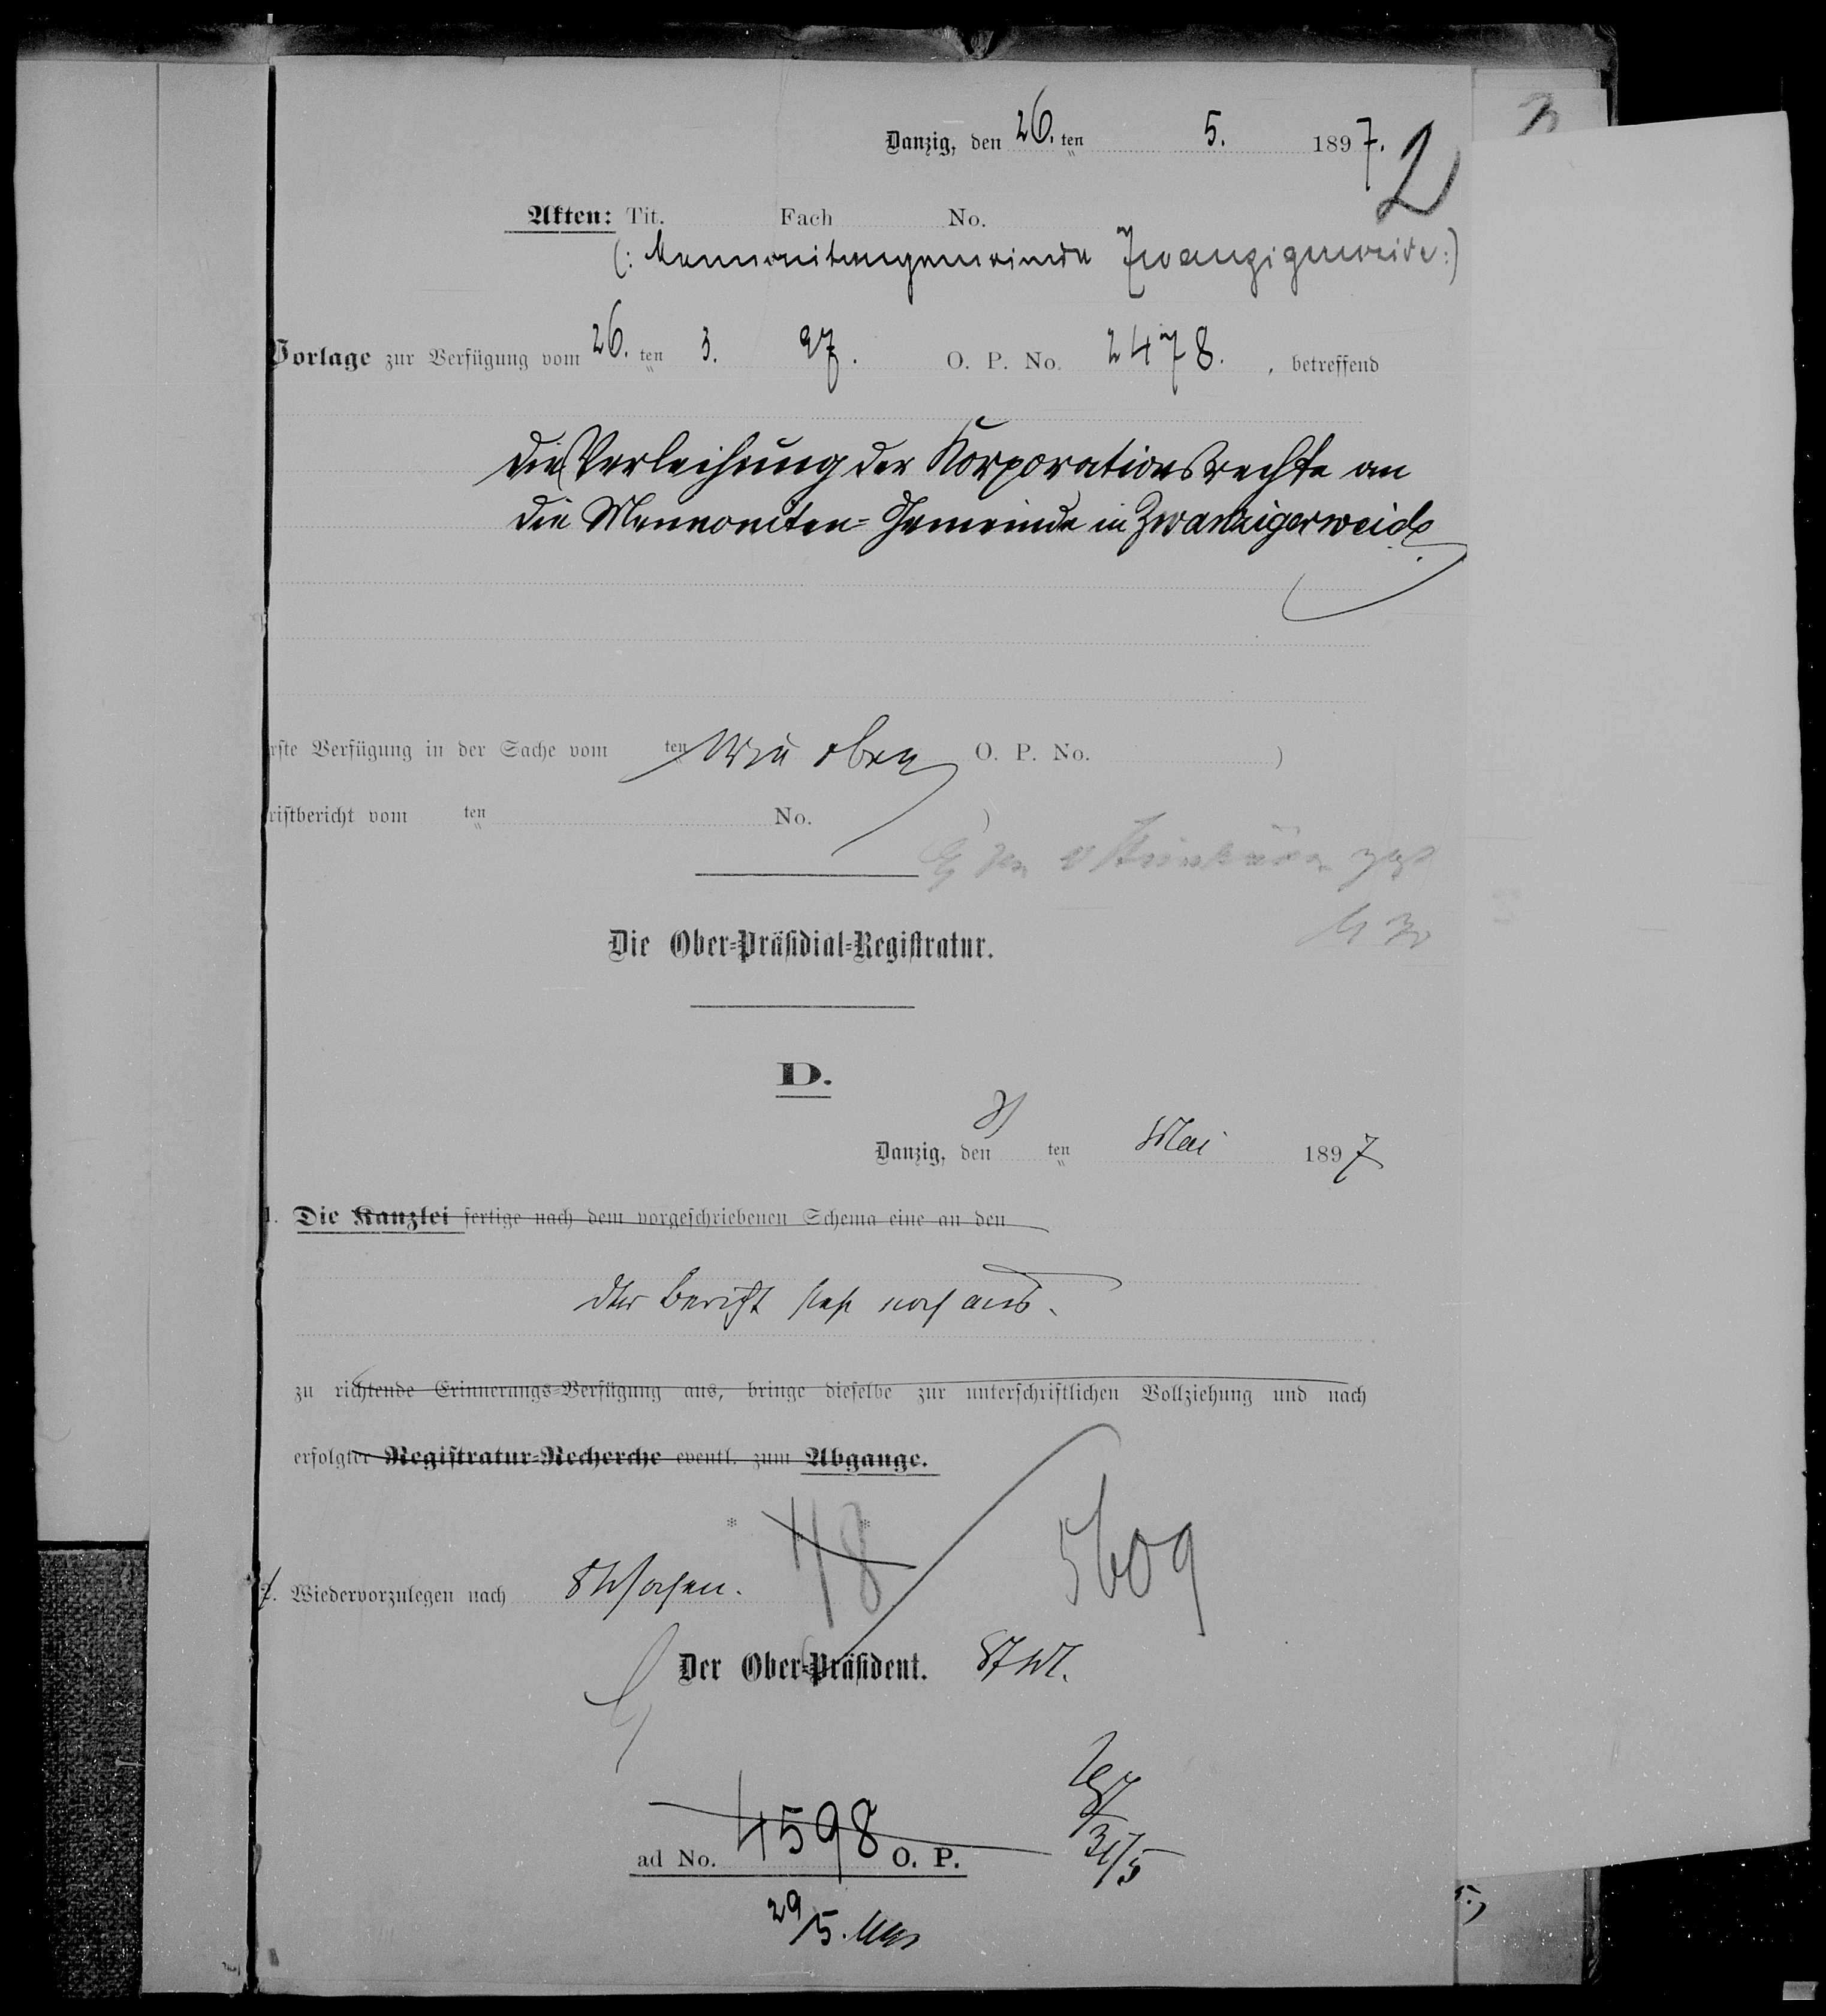 Danzig, den 26. ten 5. 1897.
2
Akten: Tit. Fach No.
(: Mennonitengemeinde Zwanzigerweide :)
Vorlage zur Verfügung vom 26. ten 3. 97. O. P. No. 2478. , betreffend
die Verleihung der Korporationsrechte an
die Mennoniten-Gemeinde in Zwanzigerweide
rste Verfügung in der Sache vom ten Wie oben O. P. No. )
ristbericht vom ten No. )
Die Ober-Präsidial-Registratur.
D.
Danzig, den ten Mai 1897
1. Die Kanzlei fertige nach dem vorgeschriebenen Schema eine an den
Der Bericht steht noch aus.
zu richtende Erinnerungs-Verfügung aus, bringe dieselbe zur unterschriftlichen Vollziehung und nach
erfolgter Registratur-Recherche eventl. zum Abgange.
* *
48 5609
Wiedervorzulegen nach 8 Wochen.
Der Ober-Präsident.
ad No. 4598 O. P.
31/5
29/5.